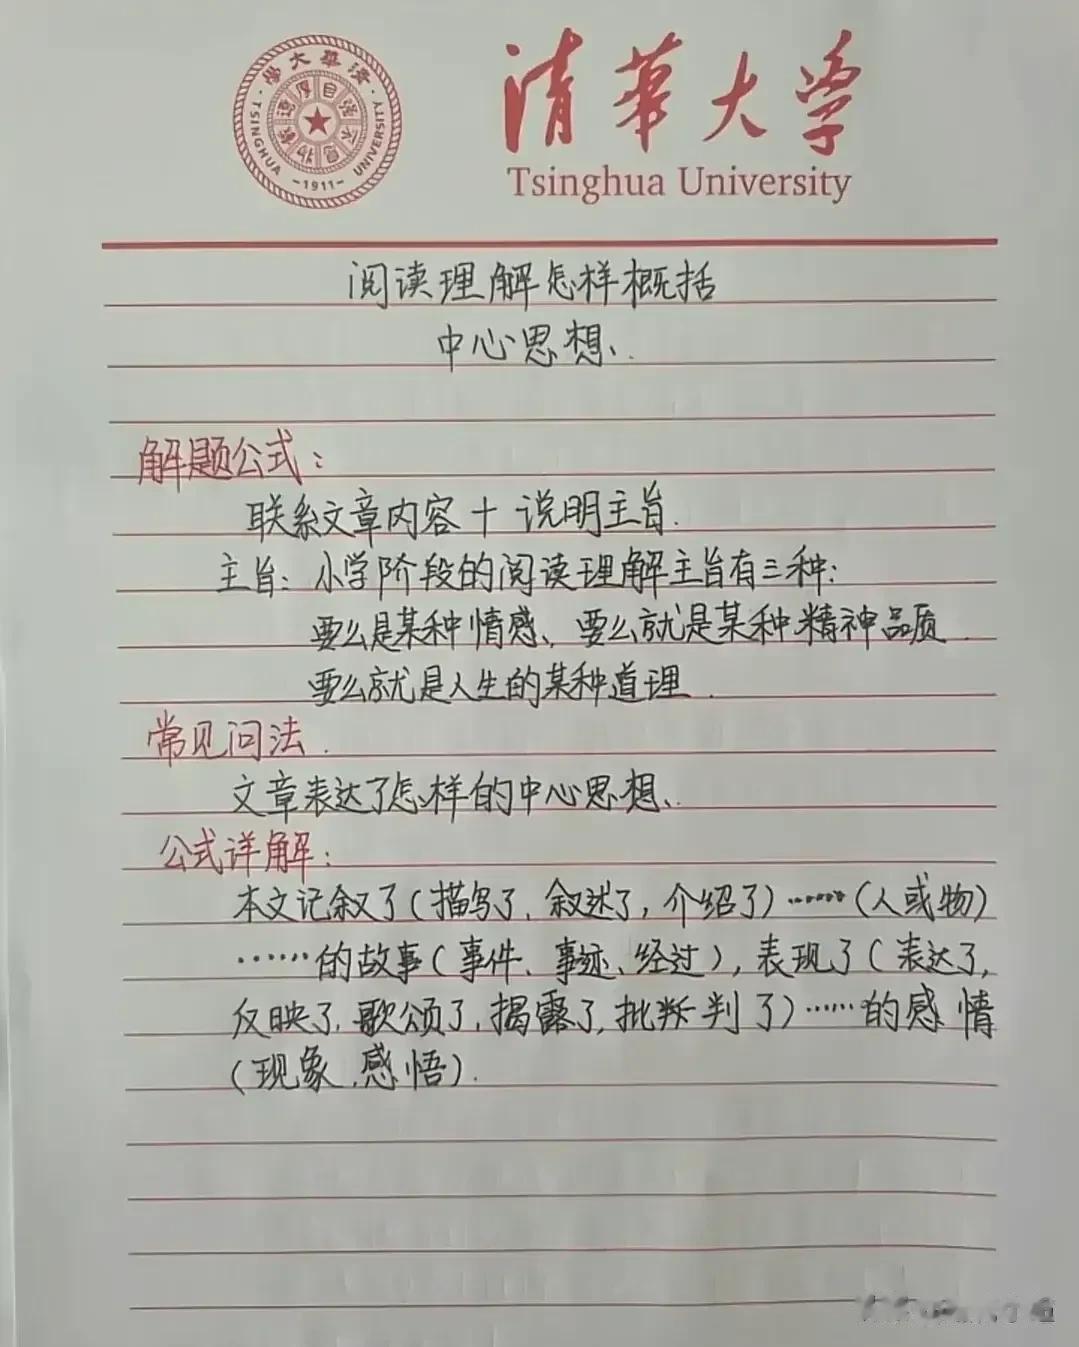 清華大学
Tsinghua University
清華大學
TSINGHUA UNIVERSITY
自强不息
厚德載物
—1911—
阅读理解怎样概括
中心思想.
解题公式:
联系文章内容+说明主旨.
主旨:小学阶段的阅读理解主旨有三种:
要么是某种情感、要么就是某种精神品质
要么就是人生的某种道理.
常见问法.
文章表达了怎样的中心思想.
公式详解:
本文记叙了(描写了、叙述了,介绍了)……(人或物)
……的故事(事件、事迹、经过),表现了(表达了,
反映了,歌颂了,揭露了,批断判了)……的感情
(现象、感悟).